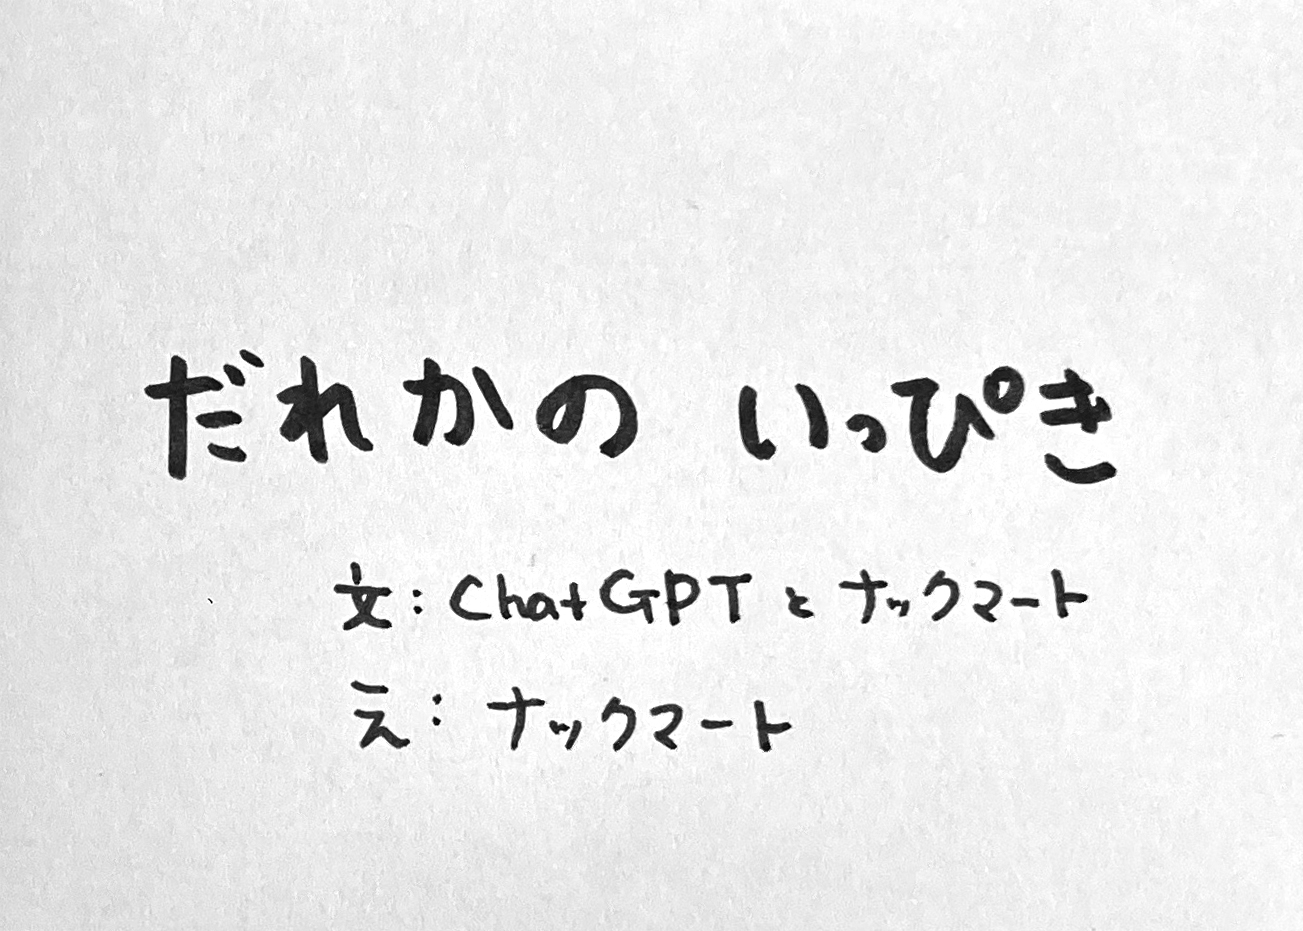 だれかの いっぴき
文：ChatGPTとナックマート
え：ナックマート